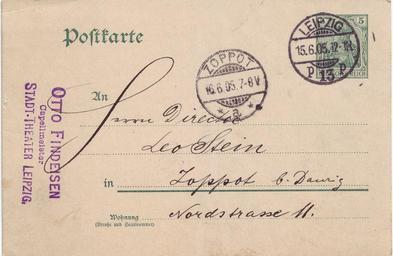 Postkarte
LEIPZIG
15.6.05. 12-1N.
P 13 P
5
ZOPPOT
16.6.05. 7-8V.
* a *
OTTO FINDEISEN
Capellmeister
STADT-THEATER LEIPZIG.
An
Herrn Director
Leo Stein
in Zoppot b. Danzig
Wohnung
(Straße und Hausnummer)
Nordstrasse 11.